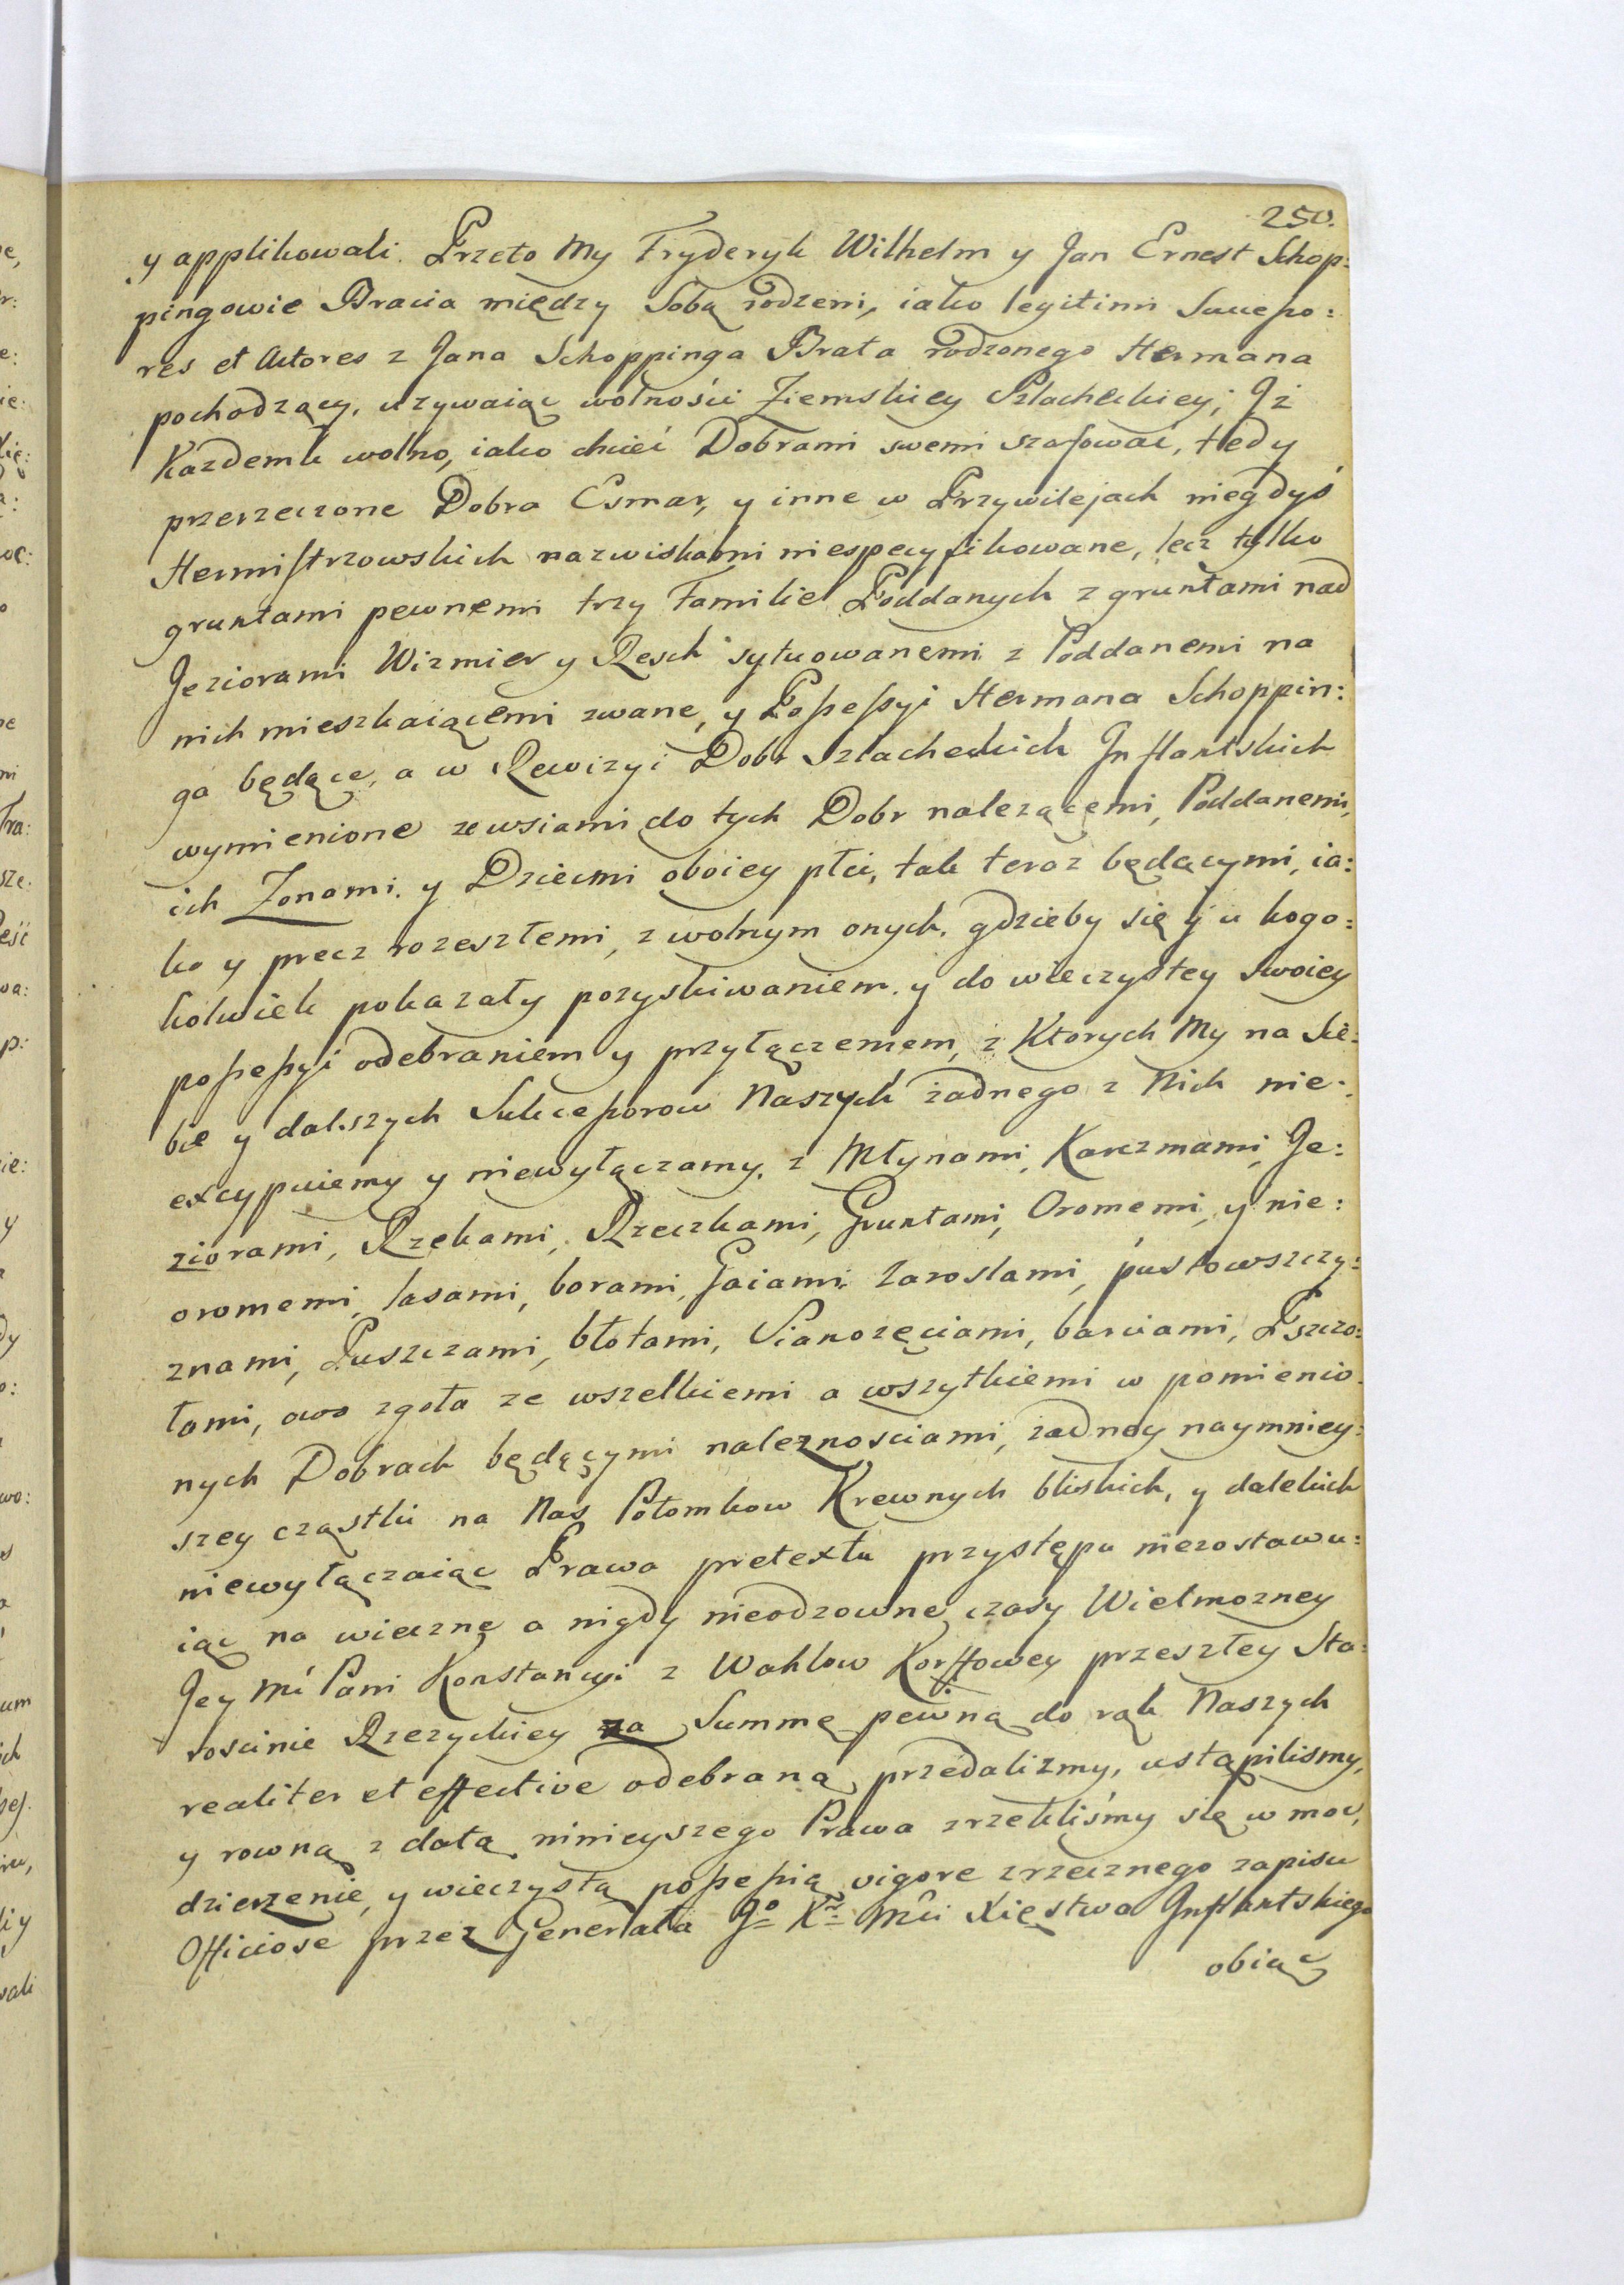 250.
y applikowali. Przeto My Fryderyk Wilhelm y Jan Ernest Schop:
pingowie Bracia między Sobą rodzeni, iako legitimi Succeſſo:
res et Actores z Jana Schoppinga Brata rodzonego Hermana
pochodzący, uzywaiąc wolności Ziemskiey Szlacheckiey; Jż
Kazdemu wolno, iako chcieć Dobrami swemi szafować, tedy
przerzeczone Dobra Esmar, y inne w Przywilejach niegdyś
Hermiſtrzowskich nazwiskami niespecyfikowane, lecz tylko
gruntami pewnemi trzy Familie Poddanych z gruntami nad
Jeziorami Wizmier y Resch sytuowanemi z Poddanemi na
nich mieszkaiącemi zwane, y Poſſeſſyi Hermana Schoppin:
ga będące, a w Rewizyi Dobr Szlacheckich Jnflantskich
wymienione ze wsiami do tych Dobr nalezącemi, Poddanemi,
ich Zonami. y Dziecmi oboiey płci, tak teraz będącymi, ia:
ko y precz rozeszłemi, z wolnym onych. gdzieby się y u kogo:
kolwiek pokazały pozyskiwaniem. y do wieczystey swoiey
poſſeſſyi odebraniem y przyłączeniem, z Ktorych My na Sie:
bie y dalszych Sukceſſorow Naszych żadnego z Nich nie:
excypuiemy y niewyłączamy. z Młynami, Karczmami, Je:
ziorami, Rzekami, Rzeczkami, Gruntami, Oromemi, y nie:
oromemi, lasami, borami, Gaiami, Zaroslami, pustowszczy:
znami, Puszczami, błotami, Sianozęciami, barciami, Pszczo:
łami, owo zgoła ze wszelkiemi a wszytkiemi w pomienio:
nych Dobrach będącymi naleznosciami, zadney naymniey:
szey cząstki na Nas Potomkow Krewnych bliskich, y dalekich
niewyłączaiąc Prawa pretextu przystępu niezostawu:
iąc na wieczne a nigdy nieodzowne czasy Wielmozney
Jey Mć Pani Konstancyi z Wahlow Korffowey przeszłey Sta:
roscinie Rzezyckiey za Summę pewną do rąk Naszych
realiter et effective odebraną, przedalizmy, ustąpilismy,
y rowną z datą ninieyszego Prawa zrzekliśmy się w moc,
dzierzenie, y wieczystą poſſeſſią vigore zrzecznego zapisu
Officiose przez Generała Jº Kr Mći Xięstwa Jnflantskiego
obiąc